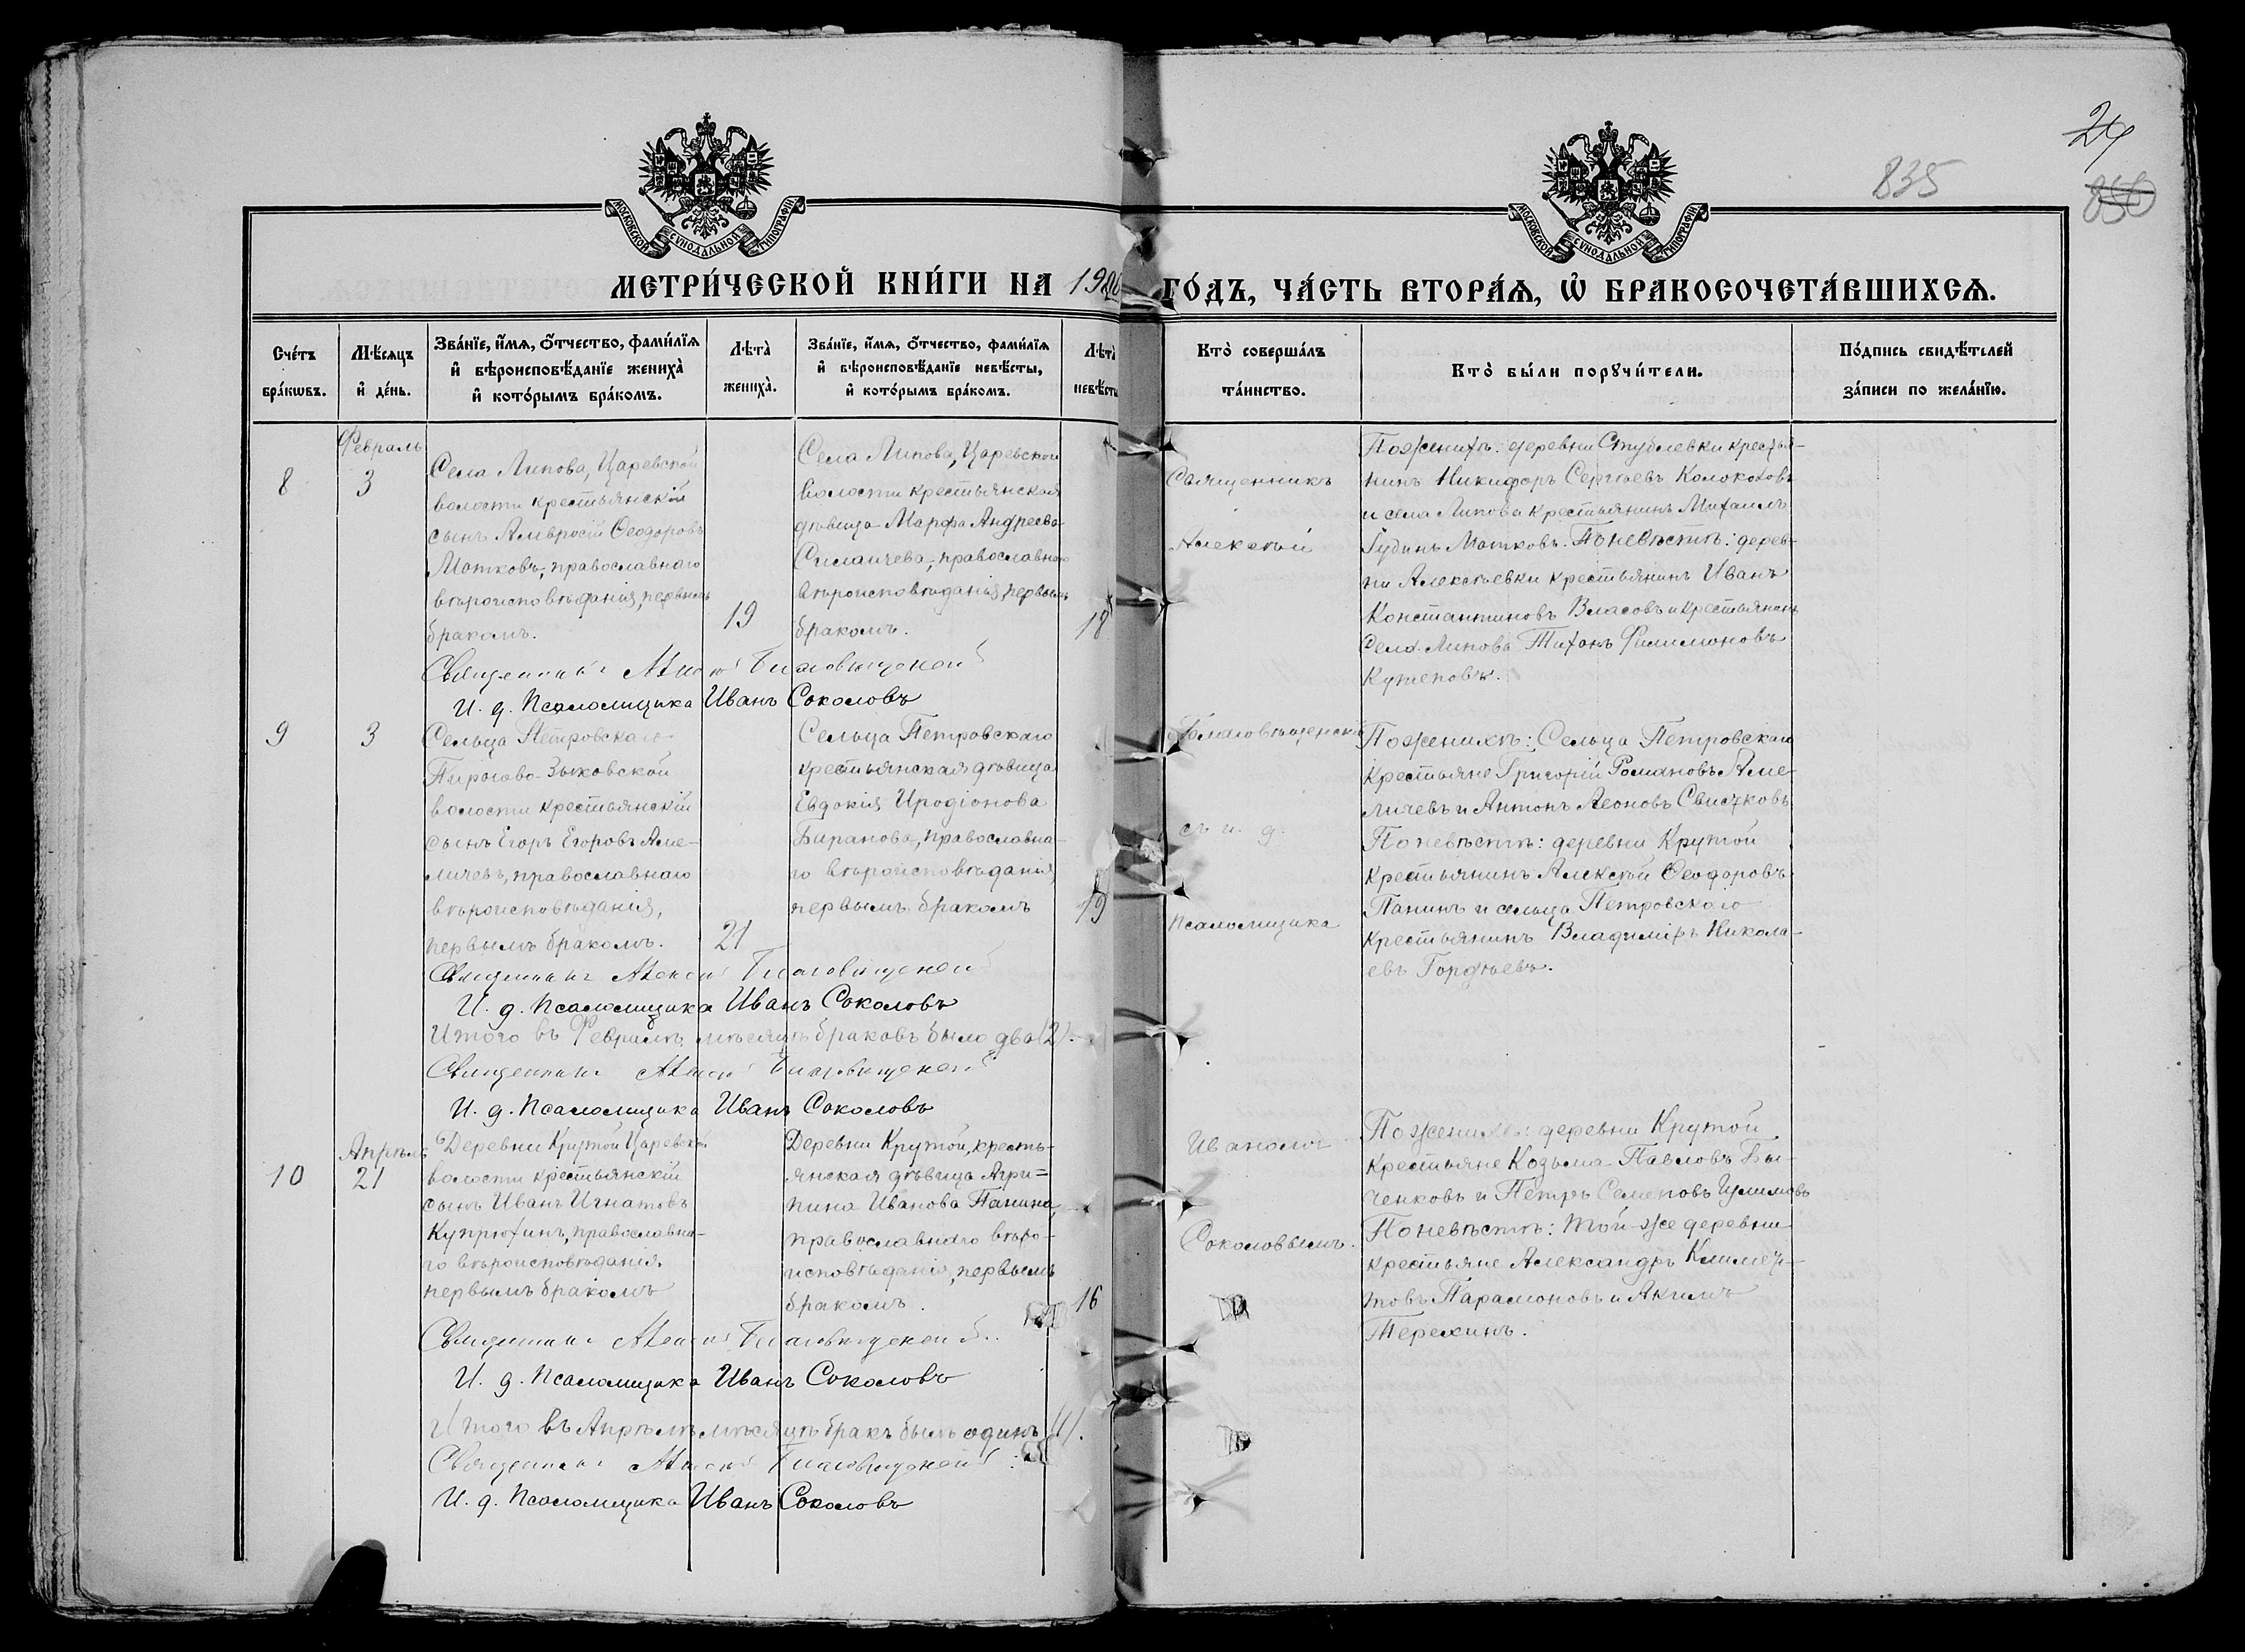 24
835
МОСКОВСКОЙ СѴНОДАЛЬНОЙ ТИПОГРАФІИ
МОСКОВСКОЙ СѴНОДАЛЬНОЙ ТИПОГРАФІИ
МЕТРИ́ЧЕСКОЙ КНИ́ГИ НА 19 ГО́ДЪ, ЧА́СТЬ ВТОРА́Ѧ, Ѽ БРАКОСОЧЕТА́ВШИХСѦ.
Сче́тъ бра́кѡвъ.
Мѣ́сѧцъ и҆ де́нь.
Зва́нїе, и҆́мѧ, ѻ҆́тчество, фами́лїѧ и҆ вѣроисповѣ́данїе жениха̀ и҆ кото́рымъ бра́комъ.
Лѣта̀ жениха̀.
Зва́нїе, и҆́мѧ, ѻ҆́тчество, фами́лїѧ и҆ вѣроисповѣ́данїе невѣ́сты, и҆ кото́рымъ бра́комъ.
Лѣта̀ невѣ́сты
Кто̀ соверша́лъ та́инство.
Кто̀ бы́ли порꙋчи́тели.
По́дпись свидѣ́телей за́писи по жела́нїю.
Февраль
8
3
Села Липова, Царевской
волости крестьянскій
сынъ Амвросій Ѳеодоровъ
Мотковъ, православнаго
вѣроисповѣданія, первымъ
бракомъ.
19
Села Липова, Царевской
волости крестьянская
дѣвица Марфа Андреева
Силаичева, православнаго
вѣроисповѣданія, первымъ
бракомъ.
18
Священникъ
Алексѣй
По женихѣ: деревни Стублевки крестья-
нинъ Никифоръ Сергѣевъ Колоколовъ
и села Липова крестьянинъ Михаилъ
Мотковъ. По невѣстѣ: дерев-
ни Алексѣевки крестьянинъ Иванъ
Константиновъ Власовъ и крестьянинъ
села Липова Тихонъ Филимоновъ
Кутеповъ.
Священникъ Алексѣй Благовѣщенскій
И. д. Псаломщика Иванъ Соколовъ
9
3
Сельца Петровскаго
Пирогово-Зыковской
волости крестьянскій
сынъ Егоръ Егоровъ Аме-
личевъ, православнаго
вѣроисповѣданія,
первымъ бракомъ.
21
Сельца Петровскаго
крестьянская дѣвица
Евдокія Иродіонова
Баранова, православна-
го вѣроисповѣданія,
первымъ бракомъ
19
Благовѣщенскій
съ и. д.
псаломщика
По женихѣ: Сельца Петровскаго
крестьяне Григорій Романовъ Аме-
личевъ и Антонъ Леоновъ Свистковъ
По невѣстѣ: деревни Крутой
крестьянинъ Алексѣй Ѳеодоровъ
Панинъ и сельца Петровскаго
крестьянинъ Владиміръ Никола-
евъ Гордѣевъ.
Священникъ Алексѣй Благовѣщенскій
И. д. Псаломщика Иванъ Соколовъ
Итого въ Февралѣ мѣсяцѣ браковъ было два (2).
Священникъ Алексѣй Благовѣщенскій
И. д. Псаломщика Иванъ Соколовъ
Апрѣль
10
21
Деревни Крутой Царевской
волости крестьянскій
сынъ Иванъ Игнатовъ
Купрюхинъ, православна-
го вѣроисповѣданія.
первымъ бракомъ
Деревни Крутой, кресть-
янская дѣвица Агри=
пина Иванова Панина,
православнаго вѣро-
исповѣданія, первымъ
бракомъ.
16
Иваномъ
Соколовымъ.
По женихѣ: деревни Крутой
крестьяне Козьма Павловъ Бы-
ченковъ и Петръ Семеновъ
По невѣстѣ: той-же деревни
крестьяне Александръ Климен-
товъ Парамоновъ и Акимъ
Терехинъ.
Священникъ Алексѣй Благовѣщенскій
И. д. Псаломщика Иванъ Соколовъ
Итого въ Апрѣлѣ мѣсяцѣ бракъ былъ одинъ (1).
Священникъ Алексѣй Благовѣщенскій
И. д. Псаломщика Иванъ Соколовъ